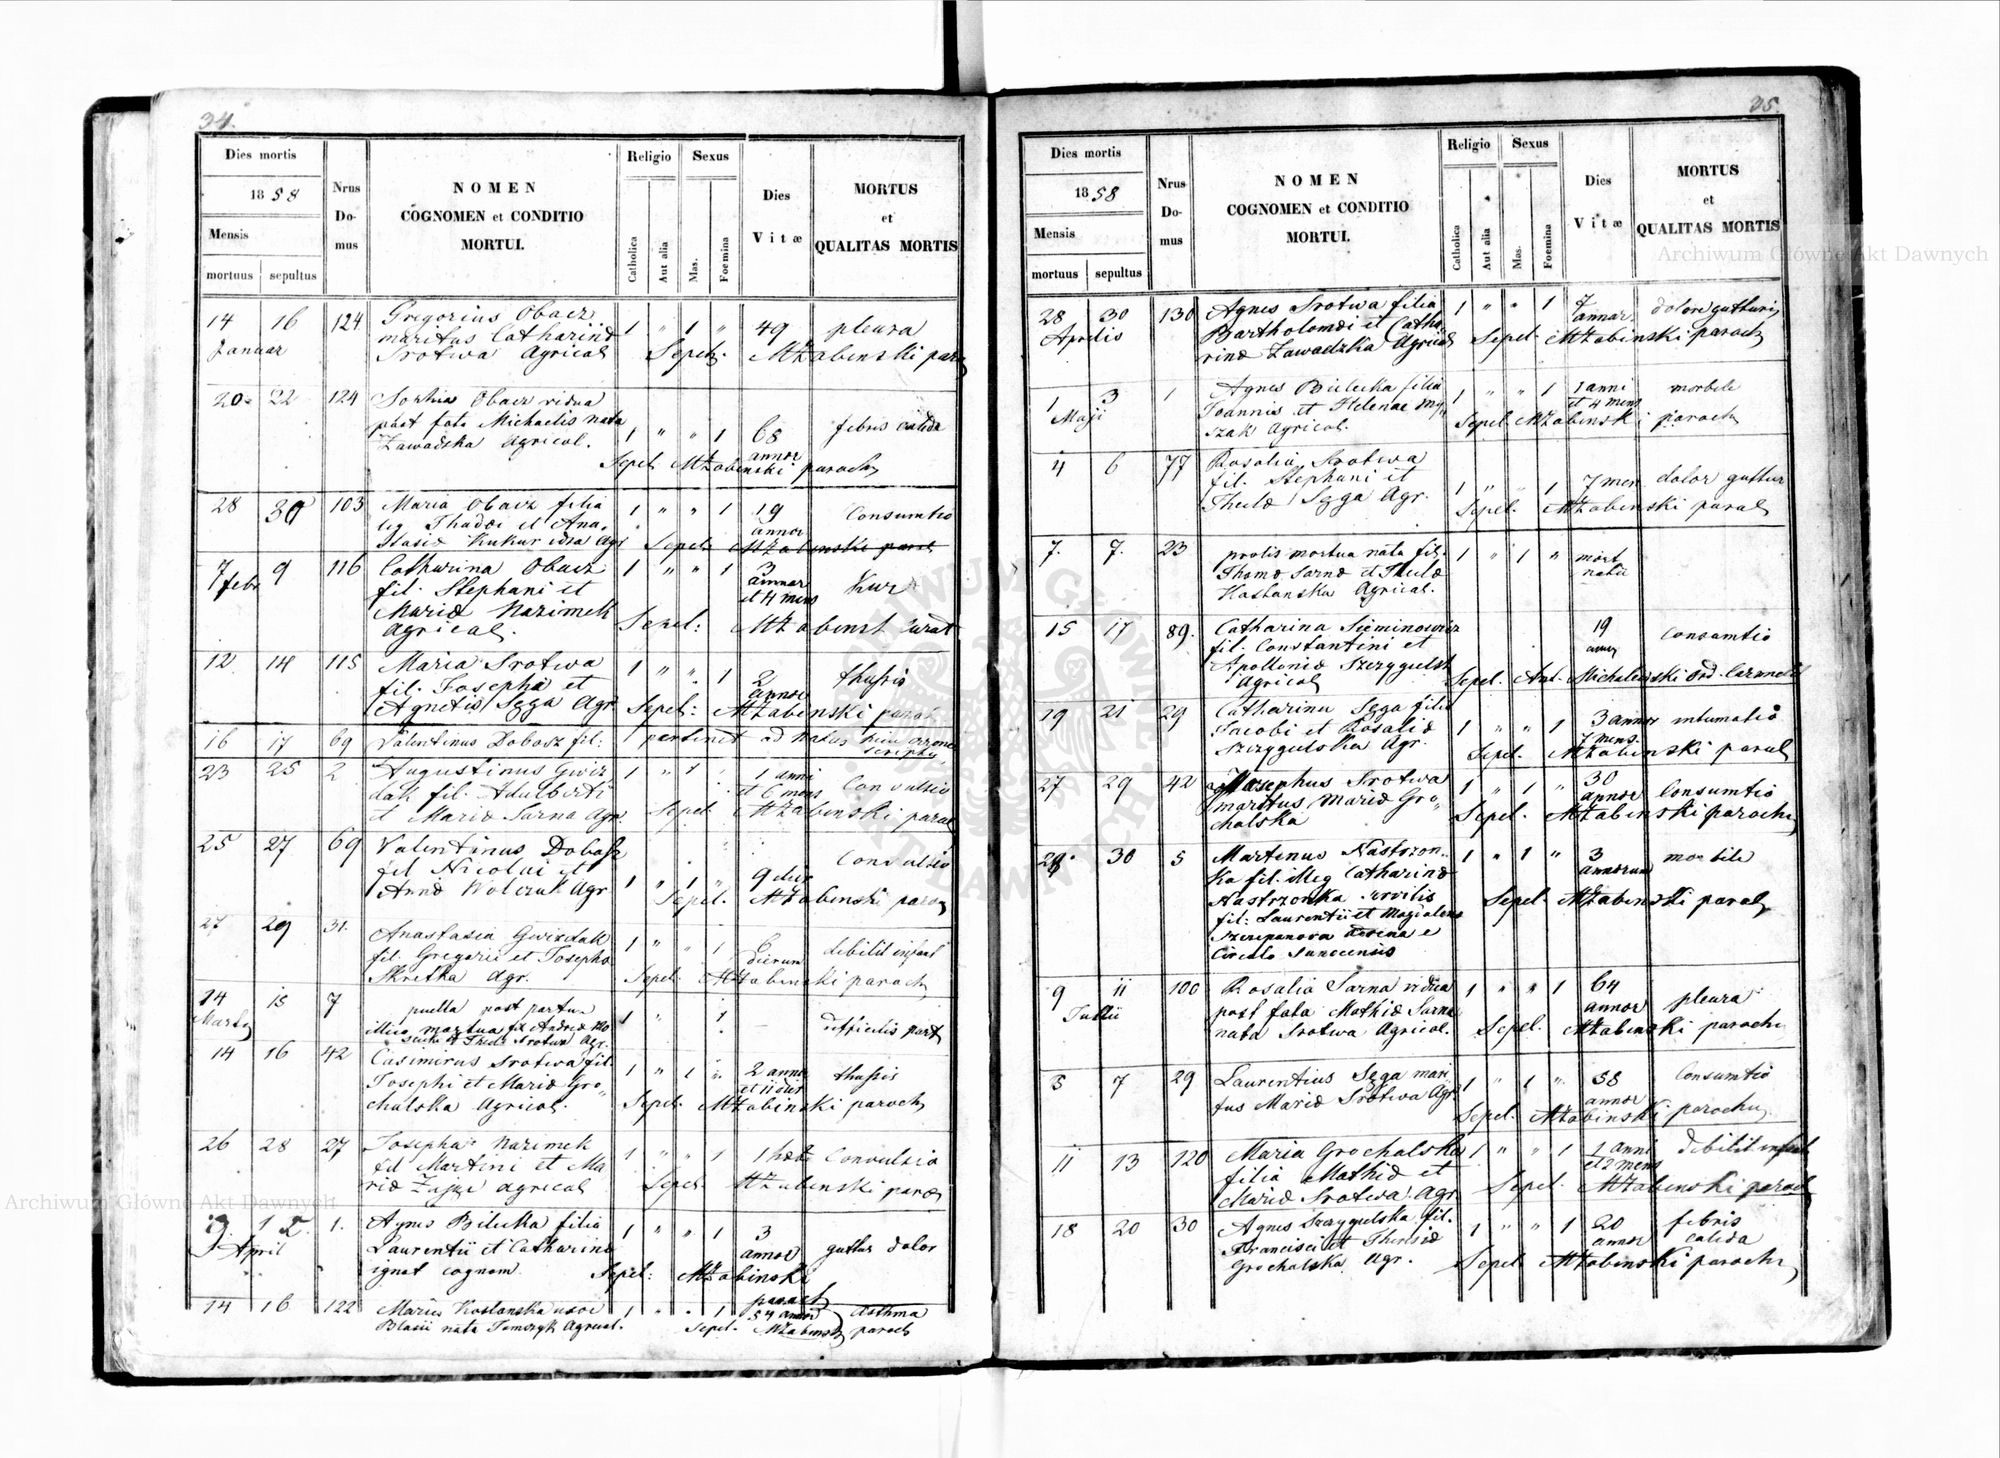 34.
Dies mortis
1858
Mensis
mortuus sepultus
Nrus Domus
NOMEN
COGNOMEN et CONDITIO
MORTUI.
Religio
Catholica
Aut alia
Sexus
Mas.
Foemina
Dies
Vitæ
MORTUS
et
QUALITAS MORTIS
14 16 124 Gregorius Obacz 1 " 1 " 49 pleura
Januar maritus Catharinæ
Srotwa Agricol Sepel. MŻabinski par
20 22 124 Sophia Obacz vidua
post fata Michaelis nata
Zawadska Agricol. 1 " " 1 68 annor febris calida
Sepel. MŻabinski paroch
28 30 103 Maria Obacz filia 1 " " 1 19 annor Consumtio
leg Thadæi et Ana-
stasiæ Kukurudza Agr Sepel: MŻabinski paroch
7 9 116 Catharina Obacz 1 " " 1 3 annor et 4 mens
febr fil. Stephani et
Mariæ Nazimek
Agricol. Sepel: MŻabinski
12 14 115 Maria Srotwa 1 " " 1 2 annor thussis
fil. Josephi et
Agnetis Sęga Agr Sepel: MŻabinski paroch
16 17 69 Valentinus Dobosz fil: pertinet ad natus
23 25 2 Augustinus Gwiz 1 " 1 1 anni et 6 mens Convulsio
dak fil. Adalberti
et Mariæ Sarna Agr. Sepel MŻabinski paroch
25 27 69 Valentinus Dobosz Convulsio
fil Nicolai et
Annæ Wolczuk Agr 1 " 1 " 9 dier
Sepel. MŻabinski paroch
27 29 31. Anastasia Gwizdak 1 " " 1 6 dierum debilit infant
fil. Gregorii et Josepha
Skretka Agr. Sepel: MŻabinski paroch
14 15 7 puella post partum 1 " 1 difficilis part
Martij illico mortua
14 16 42 Casimirus Srotwa fil. 1 " 1 " 2 anno et 11 dies thussis
Josephi et Mariæ Gro-
chalska Agricol. Sepel. MŻabinski paroch
26 28 27 Josepha Nazimek 1 " " 1 Convulsio
fil Martini et Ma
riæ Zając Agricol Sepel: MŻabinski paroch
1. Agnes Bilecka filia 1 " " 1 3 annor guttur dolor
April Laurentii et Catharinæ
ignot cognom. Sepel: MŻabinski
paroch
14 16 122 Maria Kostanska uxor 1 " " 1 54 annor Asthma
Blasii nata Tomczyk Agricol. Sepel. MŻabinski paroch
35
Dies mortis
1858
Mensis
mortuus sepultus
Nrus Domus
NOMEN
COGNOMEN et CONDITIO
MORTUI.
Religio
Catholica
Aut alia
Sexus
Mas.
Foemina
Dies
Vitæ
MORTUS
et
QUALITAS MORTIS
28 30 130 Agnes Srotwa filia 1 " " 1 7 annor dolore gutturis
Aprilis Bartholomæi et Catha-
rinæ Zawadzka Agricol Sepel MŻabinski paroch
1 3 1 Agnes Bielecka filia 1 " " 1 1 anni et 4 mens morbili
Maji Joannis et Helenae My-
szak Agricol. Sepel. MŻabinski paroch
4 6 77 Rosalia Srotwa
fil. Stephani et
Theclæ Sęga Agr. 1 " " 1 7 men dolor guttur
Sepel. MŻabinski paroch
7. 7. 23 prolis mortua nata fil. 1 " 1 " mort natu
Thomæ Sarna et Theclæ
Kostanska Agricol.
15 17 89. Catharina Sieminowicz 19 annor Consumtio
fil. Constantini et
Apolloniæ Szczygielska
Agricol Sepel. Ant. Michalewski Ord. Carmelit
19 21 29 Catharina Sęga filia
Jacobi et Rosaliæ 1 " " 1 3 annor 7 mens.
Szczygulska Agr. Sepel. MŻabinski paroch
27 29 42 Josephus Srotwa 1 " 1 " 30 annor Consumtio
maritus Mariæ Gro-
chalska Sepel. MŻabinski paroch
28 30 5 Martinus Nastrzon- 1 " 1 " 3 annorum morbili
ka fil. illeg Catharinæ
Nastrzonka servilis Sepel. MŻabinski paroch
fil: Laurentii et Magdalena
Szczepanova
Circulo Sanocensis
9 11 100 Rosalia Sarna vidua 1 " " 1 64 annor pleura
Julii post fata Mathiæ Sarna
nata Srotwa Agricol. Sepel. MŻabinski paroch
5 7 29 Laurentius Sęga mari 1 " 1 " 58 annor Consumtio
tus Mariæ Srotwa Agr. Sepel. MŻabinski parochu
11 13 120 Maria Grochalska 1 " " 1 1 anni et 2 mens debilit infant
filia Mathiæ et
Mariæ Srotwa Agr. Sepel. MŻabinski paroch
18 20 30 Agnes Szczygulska fil. 1 " " 1 20 annor febris calida
Francisci et Theresiæ
Grochalska Agr. Sepel MŻabinski paroch
Archiwum Główne Akt Dawnych
Archiwum Główne Akt Dawnych
ARCHIWUM GŁÓWNE AKT DAWNYCH